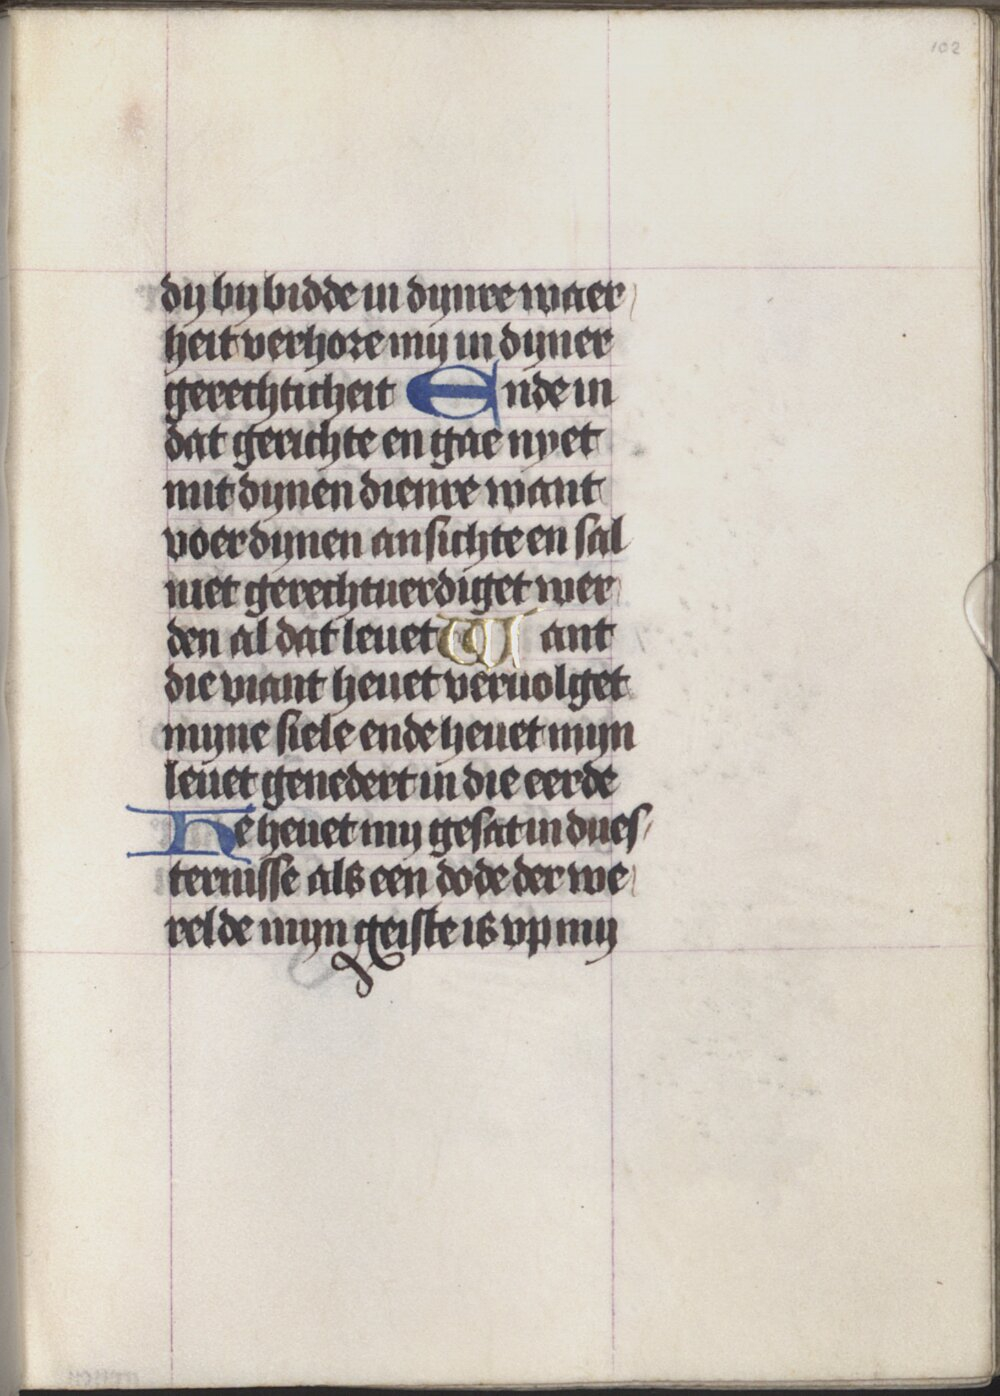 102
dy by bidde in dynre waer
heit verhore my in dyner
gerechticheit Ende in
dat gerichte en gae nyet
mit dynen dienre want
voer dynen ansichte en sal
niet gerechtuerdiget wer
den al dat leuet Want
die viant heuet veruolget
myne siele ende heuet myn
leuet genedert in die eerde
He heuet my gesat in dues
ternisse als een dode der we
relde myn geiste is vp my